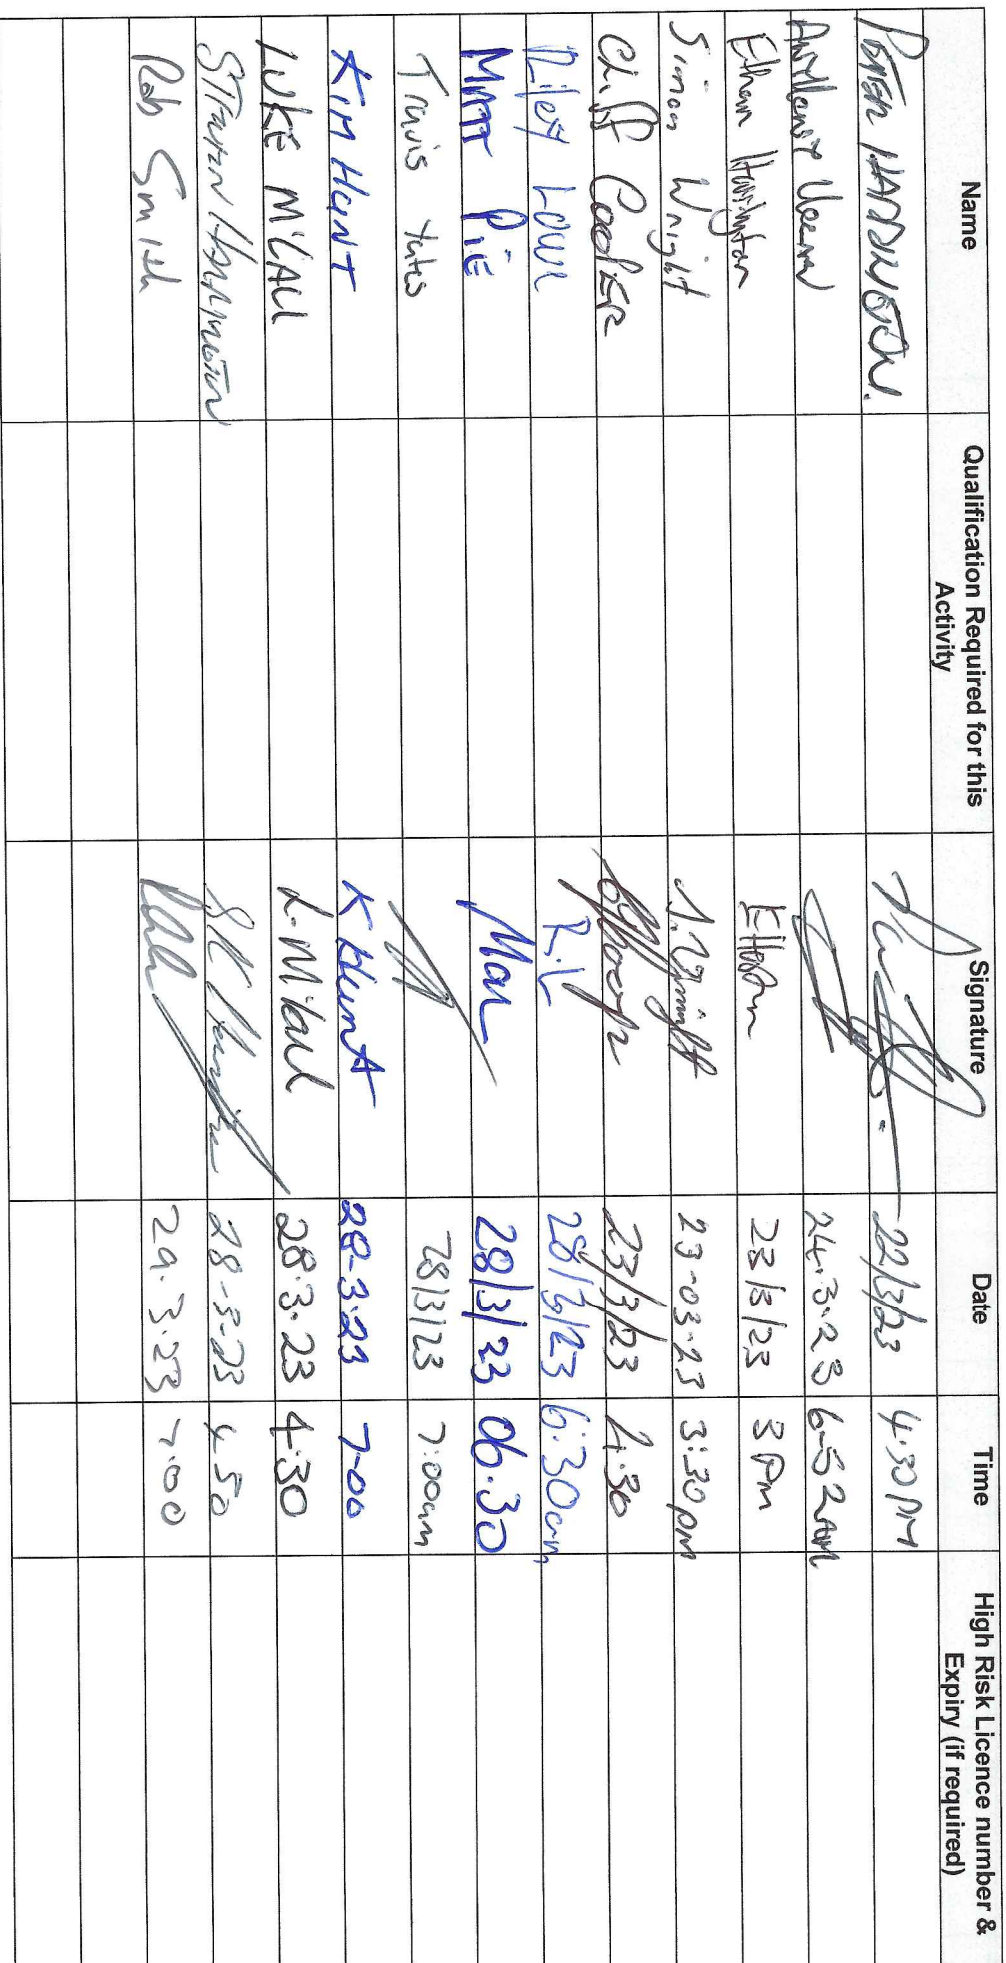 Name Qualification Required for this Activity Signature Date Time High Risk Licence number & Expiry (if required)
PETER HARRINGTON. 22/3/23 4.30 PM
24.3.23 6-52AM
Ethan 23/3/23 3 Pm
Simon Wright S.Wright 23-03-23 3:30pm
Cliff COOPER 23/3/23 4.30
Riley Lowe R.L 28/3/23 6:30am
MATT PIE 28/3/23 06.30
Travis Yates 28/3/23 7:00am
KIM HUNT K Hunt 28-3-23 7-00
LUKE M'CALL L.M'Call 28.3.23 4.30
STEVEN HARRINGTON 28-3-23 4.50
Rob Smith 29.3.23 7.00